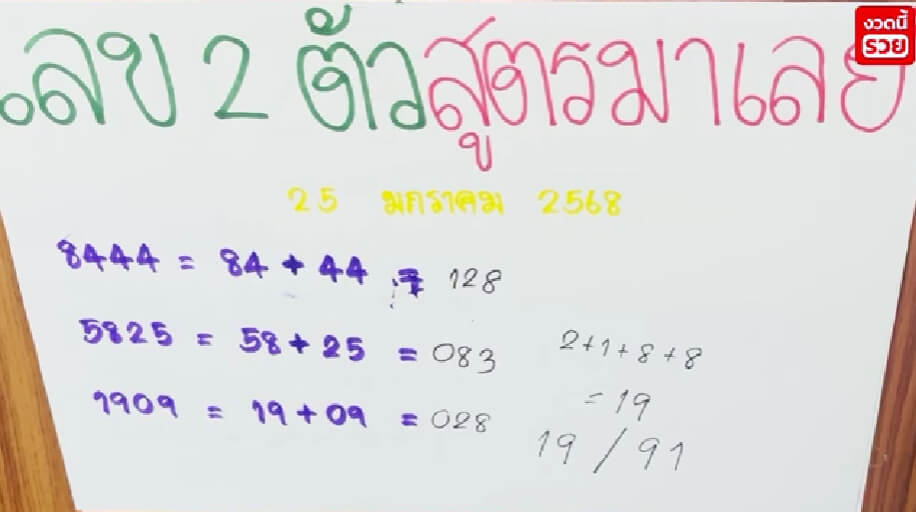 งวดนี้
รวย
เลข 2 ตัวสูตรมาเลย
25 มกราคม 2568
8444 = 84 + 44 = 128
5825 = 58 + 25 = 083
1909 = 19 + 09 = 028
2+1+8+8
= 19
19 / 91